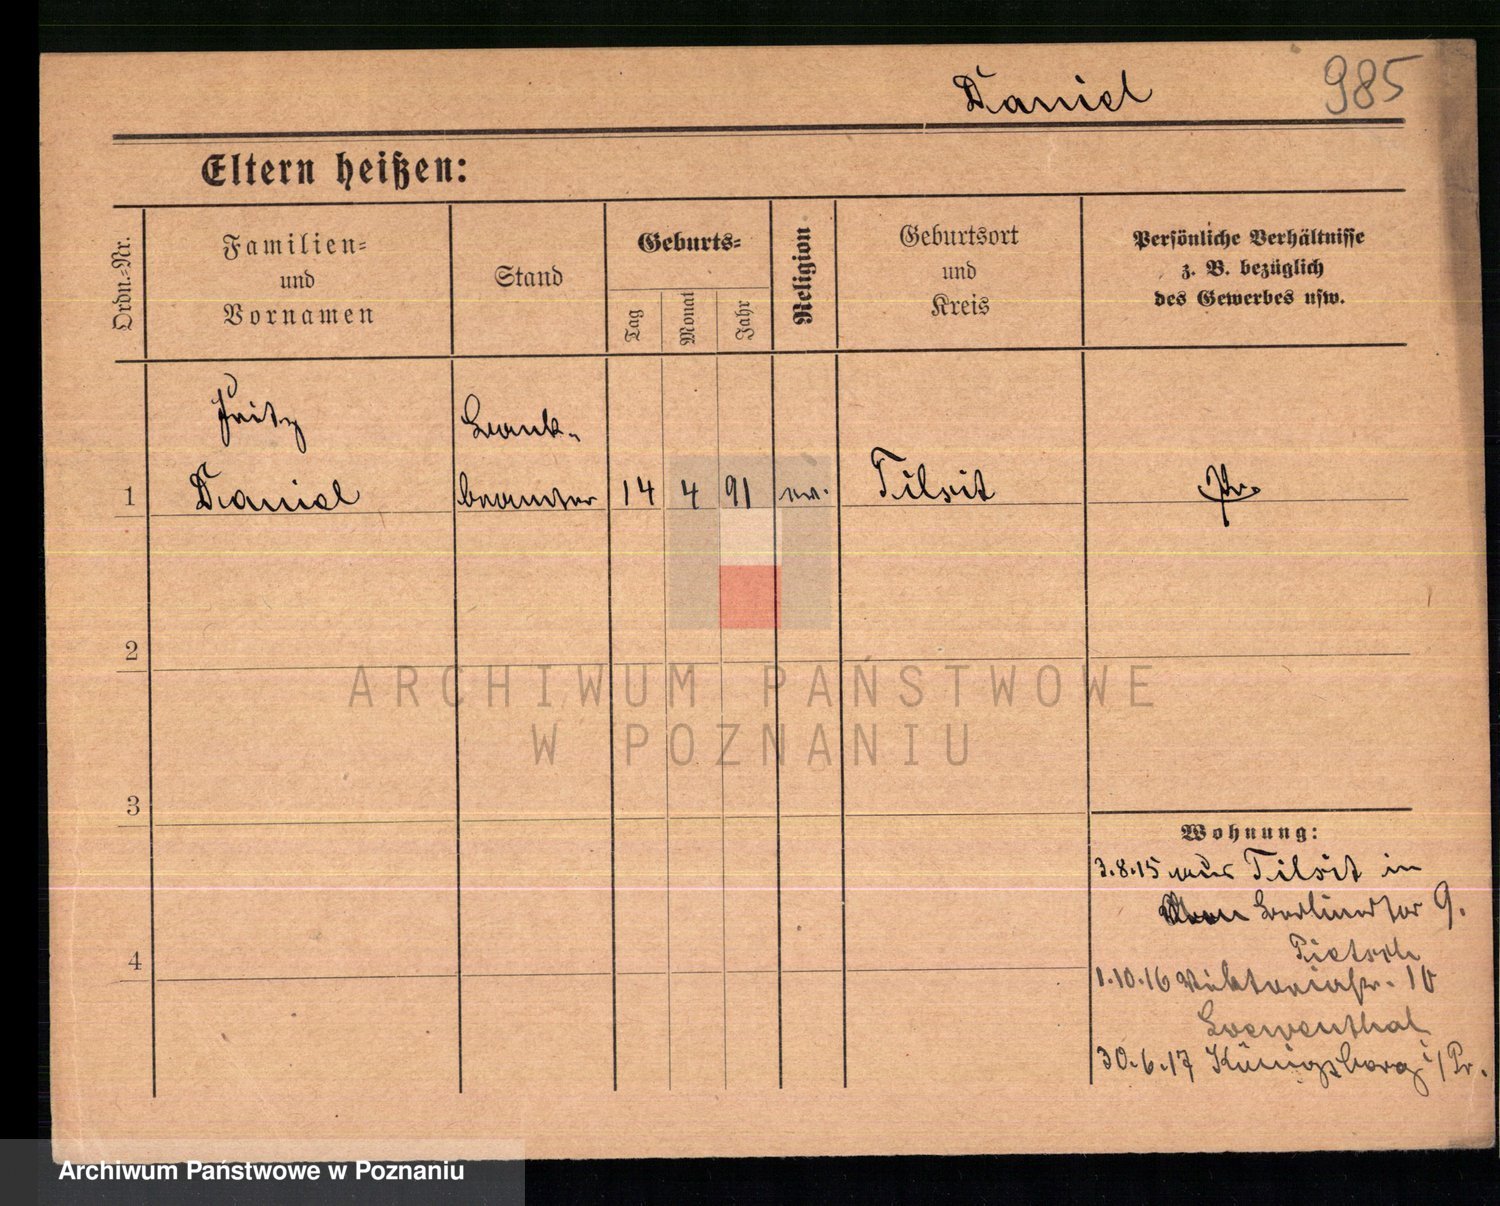 Daniel 985
Eltern heißen:
Ordn.-Nr.
Familien-
und
Vornamen
Stand
Geburts-
Tag
Monat
Jahr
Religion
Geburtsort
und
Kreis
Persönliche Verhältnisse
z. B. bezüglich
des Gewerbes usw.
Fritz Bank-
1 Daniel beamter 14 4 91 ev. Tilsit Pr.
2
3
4
ARCHIWUM PAŃSTWOWE
W POZNANIU
Wohnung:
3.8.15 aus Tilsit in
Berlinertor 9.
Pietsch
1.10.16 Viktoriastr. 10
Loewenthal
30.6.17 Königsberg i/Pr.
Archiwum Państwowe w Poznaniu